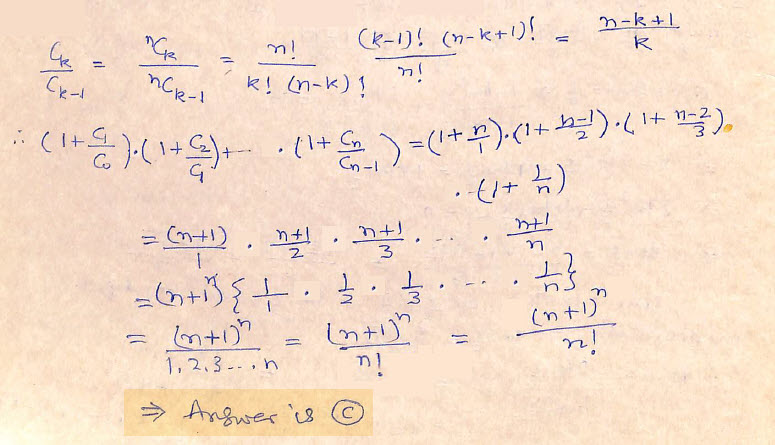 Ck/Ck-1 = nCk/nCk-1 = n!/k! (n-k)! (k-1)! (n-k+1)!/n! = n-k+1/k
∴ (1+C1/C0)·(1+C2/C1)+--- ·(1+Cn/Cn-1) = (1+n/1)·(1+n-1/2)·(1+n-2/3).
·-(1+1/n)
= (n+1)/1 · n+1/2 · n+1/3 · -- · n+1/n
= (n+1)^n } { 1/1 · 1/2 · 1/3 · -- · 1/n }
= (n+1)^n/1.2.3---.n = (n+1)^n/n! = (n+1)^n/n!
⇒ Answer is Ⓒ